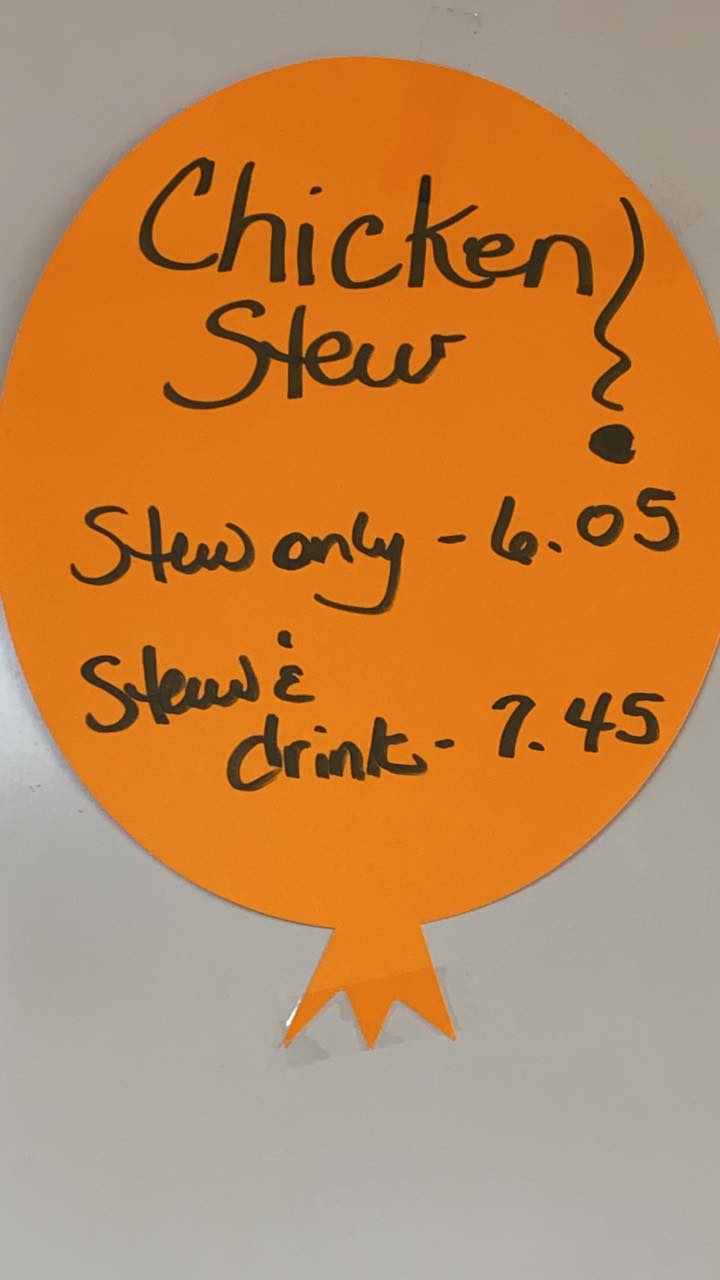 Chicken
Stew!
Stew only - 6.05
Stew &
drink - 7.45